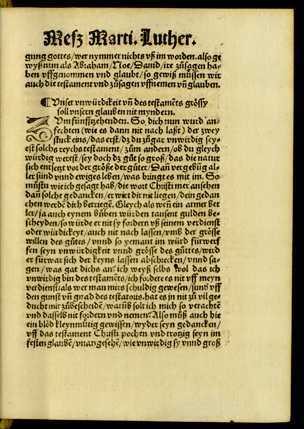 Mesz Marti. Luther.
gung gottes/wer nymmer nichts vß im worden. also ge
wyß nun als Abraham/Noe/Dauid/ire zůsagen ha
ben vffgenommen vnd glaubt/so gewiß müssen wir
auch diß testament vnd zůsagen vffnemen vñ glauben.
¶ Vnser vnwürdkeit vñ des testamẽts grössy
soll vnsern glauben nit myndern.
Zum fünfftzehenden. So dich nun wurd an-
fechten (wie es dann nit nach laßt) der zwey
stuck eins/das erst/dz du zůgar vnwirdig sey-
est solchs rychẽ testament/zům andern/ob du gleych
würdig werest/sey doch dz gůt so groß/das die natur
sich entsegt vor der größe der güter. Dañ vergebũg al-
ler sünd vnd ewiges leben/was bringts mit im. So
můstu wie ich gesagt hab/die wort Christi mer ansehen
dañ solche gedancken/er wirt dir nit liegen/dein gedan
cken werdẽ dich betriegẽ. Gleych als weñ ein armer bet
ler/ja auch eynem bůben würden tausent gulden be-
scheyden/so würde er nit sy fordern vß seinem verdienst
oder würdikeyt/auch nit nach lassen/vmb der größe
willen des gůtes/vnnd so yemant im würd fürwerf
fen seyn vnwürdickeit vnnd größe des gůttes/wird
er fürwar sich der keyns lassen abschrecken/vnnd sa-
gen/was gat dichs an/ich weyß selbs wol das ich
vnwirdig bin des testamẽts/ich fordere es nit vff meyn
verdienst/als wer man mirs schuldig gewesen/sund vff
den gunst vñ gnad des testators/hat es in nit zů vil ge-
dücht mir zů bescheidẽ/warũb solt ich mich so verachtẽ
vnd dasselb nit fordern vnd nemen? Also můß auch hie
ein blöd kleynmütig gewissen/wyder seyn gedancken/
vff das testament Christi pochen vnd trotzig seyn im
festen glaubẽ/vnangesehẽ/wie vnwirdig sy vnnd groß